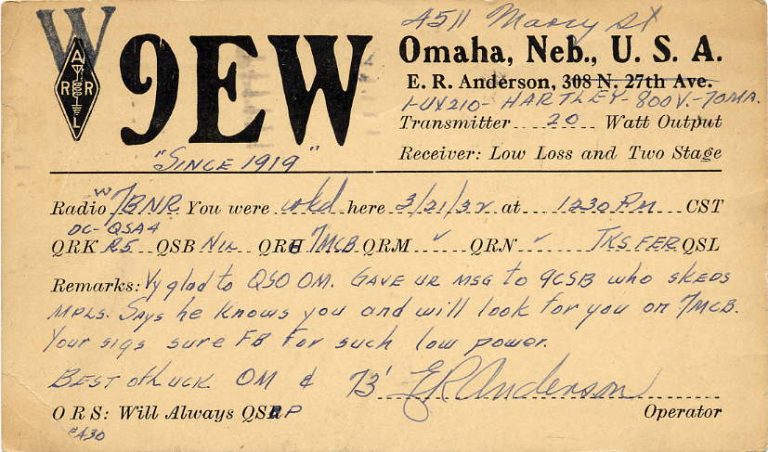 4511 Marcy St
W9EW
A R R L
Omaha, Neb., U. S. A.
E. R. Anderson, 308 N. 27th Ave.
1-UV210- HARTLEY- 800V.- 70MA.
Transmitter 20 Watt Output
"SINCE 1919"
Receiver: Low Loss and Two Stage
Radio W7BNR You were wkd here 3/21/32 at 1230 PM CST
DC- QSA4
QRK R5 QSB NIL QRH 7MCB QRM ✓ QRN ✓ TKS FER QSL
Remarks: Vy glad to QSO OM. GAVE UR MSG TO 9CSB WHO SKEDS
MPLS. SAYS he knows you and will look for you on 7MCB.
Your sigs sure FB for such low power.
BEST of LUCK OM & 73' E R Anderson
O R S: Will Always QSRP Operator
#A30